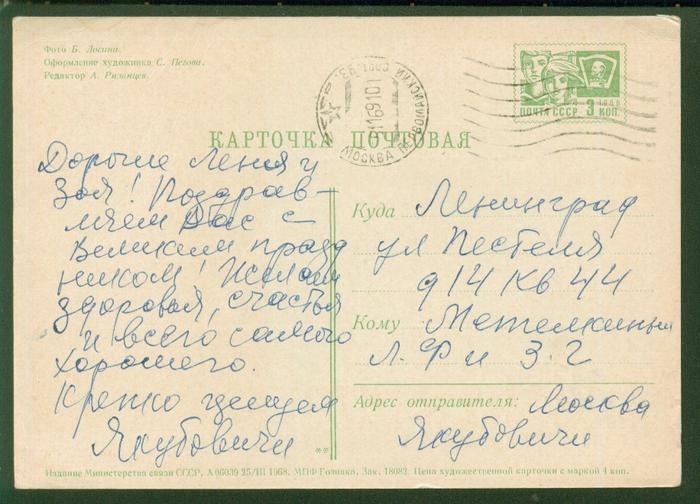 Фото Б. Лосина.
Оформление художника С. Пегова.
Редактор А. Рязанцев.
ПОЧТА СССР 3 КОП.
1966
МОСКВА
КАРТОЧКА ПОЧТОВАЯ
Дорогие Леня и
Зоя! Поздрав-
ляем Вас с
Великим празд
ником! Желаем
здоровья, счастья
и всего самого
хорошего.
Крепко целуем
Якубовичи
Куда Ленинград
ул Пестеля
д 14 кв 44
Кому Метелкиным
Л. Ф и З. Г
Адрес отправителя: Москва
Якубовичи
**
Издание Министерства связи СССР. А 06039 25/III 1968. МПФ Гознака. Зак. 18082. Цена художественной карточки с маркой 4 коп.